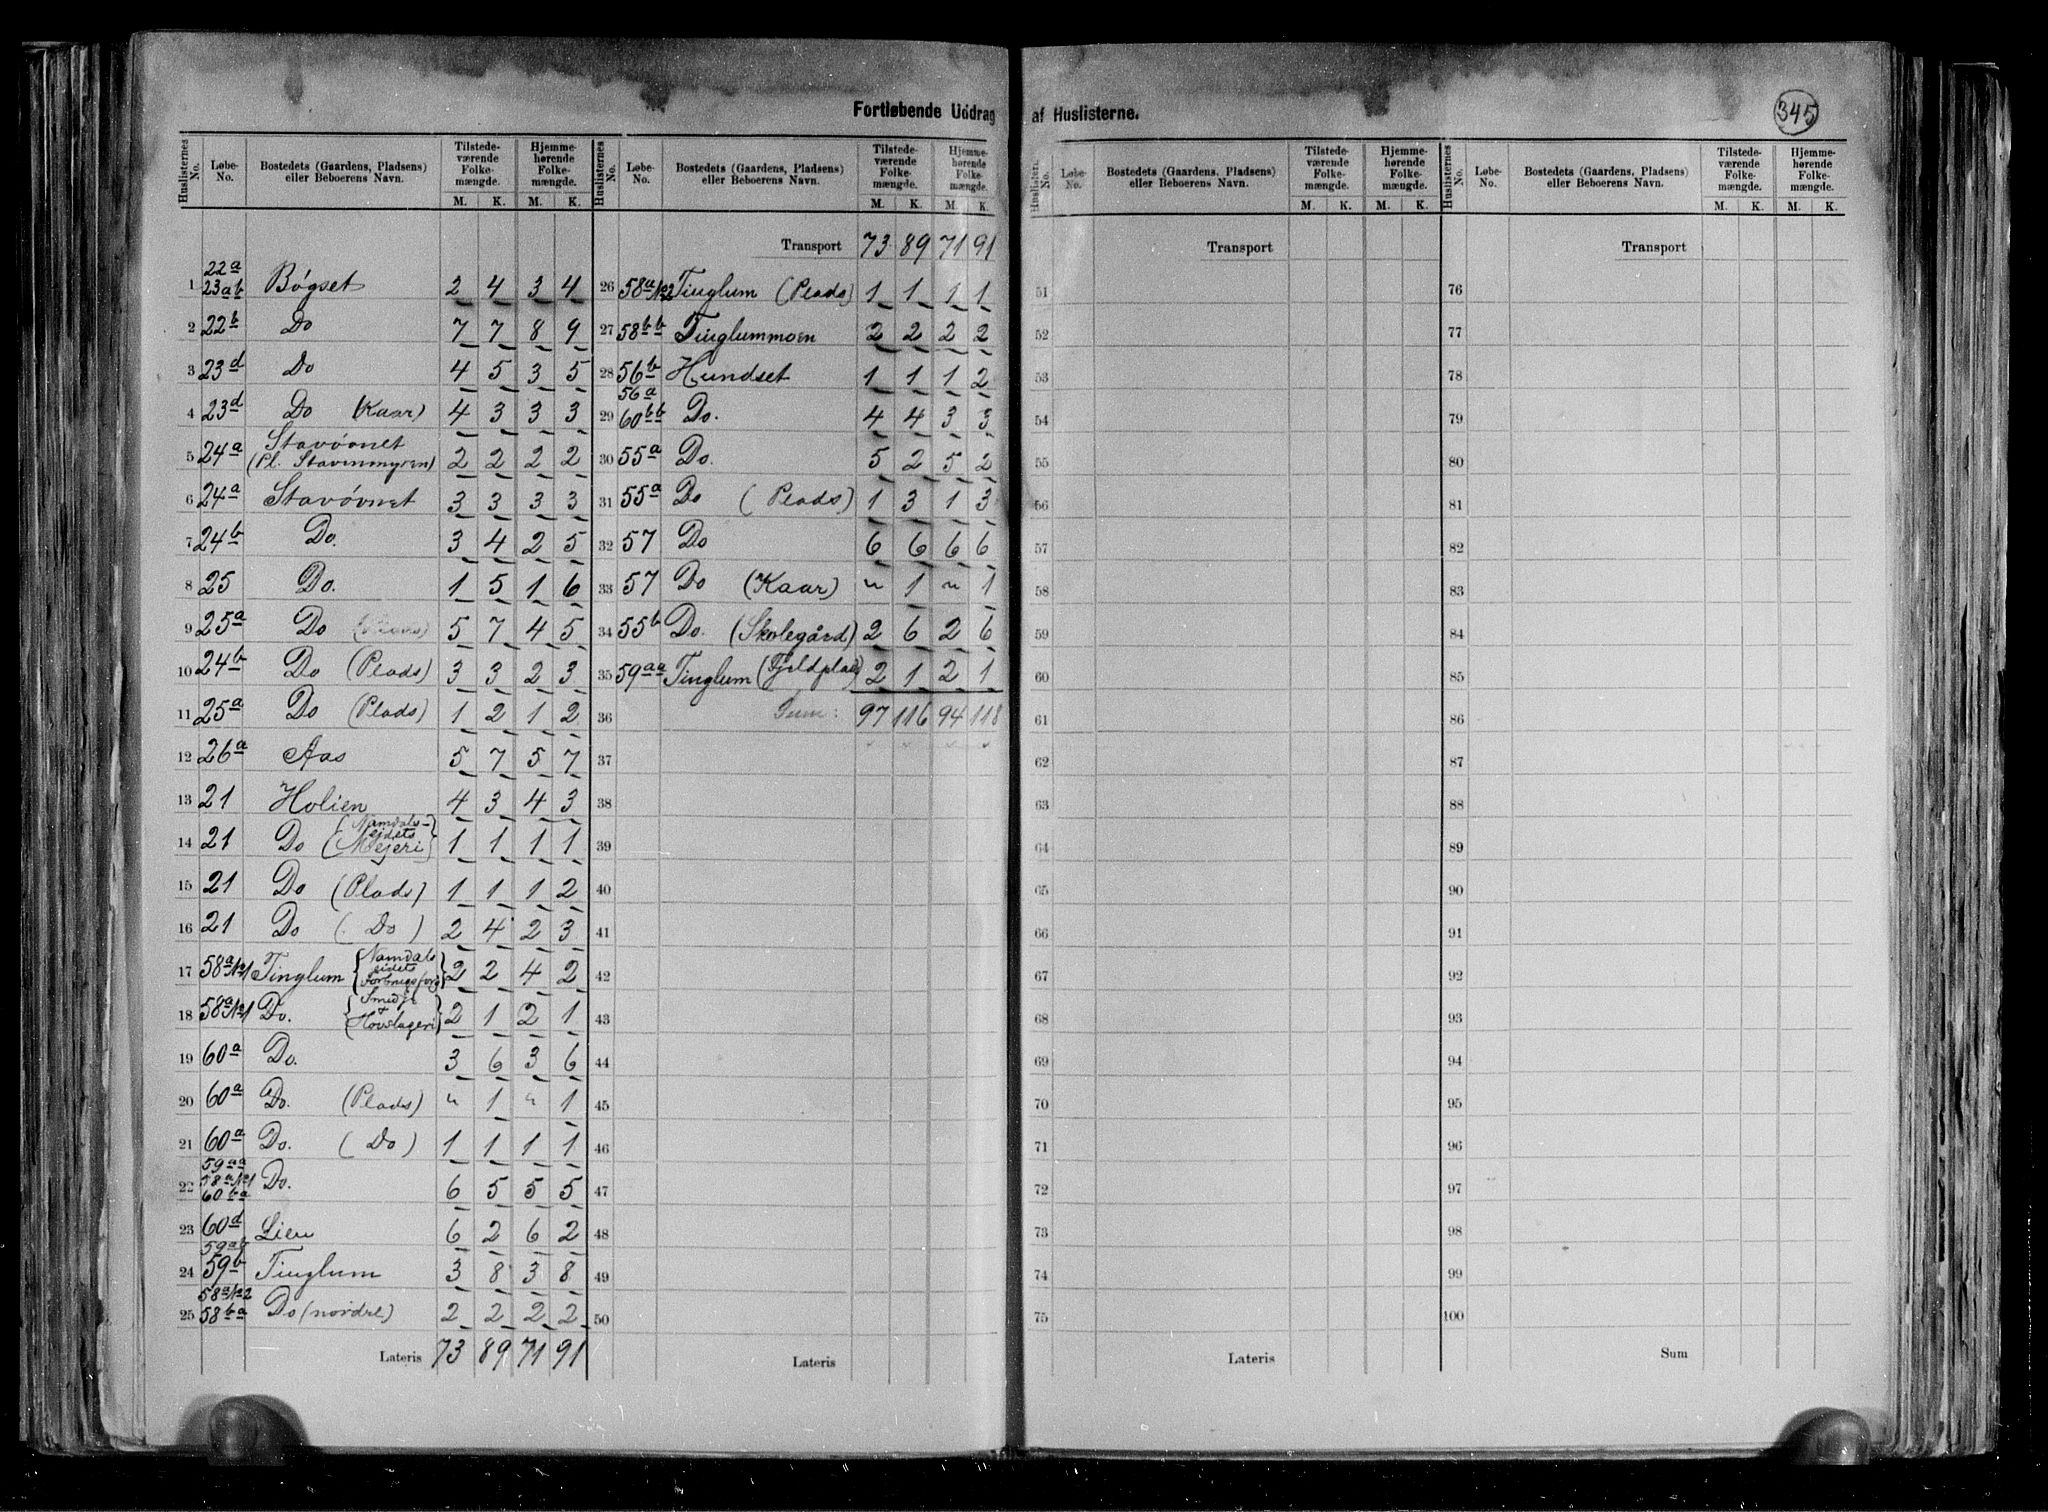 Fortløbende Uddrag af Huslisterne.
345
Huslisternes No. | Løbe-No. | Bostedets (Gaardens, Pladsens) eller Beboerens Navn. | Tilstede-værende Folke-mængde. M. K. | Hjemme-hørende Folke-mængde. M. K.
1 22a 23ab Bøgset 2 4 3 4
2 22b Do 7 7 8 9
3 23d Do 4 5 3 5
4 23d Do (Kaar) 4 3 3 3
5 24a Stavøvnet (Pl. Stavinmyren) 2 2 2 2
6 24a Stavøvnet 3 3 3 3
7 24b Do. 3 4 2 5
8 25 Do. 1 5 1 6
9 25a Do (Plads) 5 7 4 5
10 24b Do (Plads) 3 3 2 3
11 25a Do (Plads) 1 2 1 2
12 26a Aas 5 7 5 7
13 21 Holien 4 3 4 3
14 21 Do (Namdals-ejdets Mejeri) 1 1 1 1
15 21 Do (Plads) 1 1 1 2
16 21 Do (Do) 2 4 2 3
17 58a/№1 Tinglum {Namdals ejdets 2 2 4 2
18 58a/№1 Do. {Smedje + Hovslageri} 2 1 2 1
19 60a Do. 3 6 3 6
20 60a Do. (Plads) " 1 " 1
21 60a Do. (Do) 1 1 1 1
22 59aa 58a/№1 60ba Do. 6 5 5 5
23 60d Lien 6 2 6 2
24 59ab 59b Tinglum 3 8 3 8
25 58a/№2 58ba Do (nordre) 2 2 2 2
Lateris 73 89 71 91
Huslisternes No. | Løbe-No. | Bostedets (Gaardens, Pladsens) eller Beboerens Navn. | Tilstede-værende Folke-mængde. M. K. | Hjemme-hørende Folke-mængde. M. K.
Transport 73 89 71 91
26 58a/№2 Tinglum (Plads) 1 1 1 1
27 58bb Tinglummoen 2 2 2 2
28 56b Hundset 1 1 1 2
29 56a 60bb Do. 4 4 3 3
30 55a Do. 5 2 5 2
31 55a Do (Plads) 1 3 1 3
32 57 Do 6 6 6 6
33 57 Do (Kaar) " 1 " 1
34 55b Do. (Skolegård) 2 6 2 6
35 59aa Tinglum (Fjeldplads) 2 1 2 1
36 Sum: 97 116 94 118
37
38
39
40
41
42
43
44
45
46
47
48
49
50
Lateris
Huslistern. No. | Løbe-No. | Bostedets (Gaardens, Pladsens) eller Beboerens Navn. | Tilstede-værende Folke-mængde. M. K. | Hjemme-hørende Folke-mængde. M. K.
Transport
51
52
53
54
55
56
57
58
59
60
61
62
63
64
65
66
67
68
69
70
71
72
73
74
75
Lateris
Huslisternes No. | Løbe-No. | Bostedets (Gaardens, Pladsens) eller Beboerens Navn. | Tilstede-værende Folke-mængde. M. K. | Hjemme-hørende Folke-mængde. M. K.
Transport
76
77
78
79
80
81
82
83
84
85
86
87
88
89
90
91
92
93
94
95
96
97
98
99
100
Sum